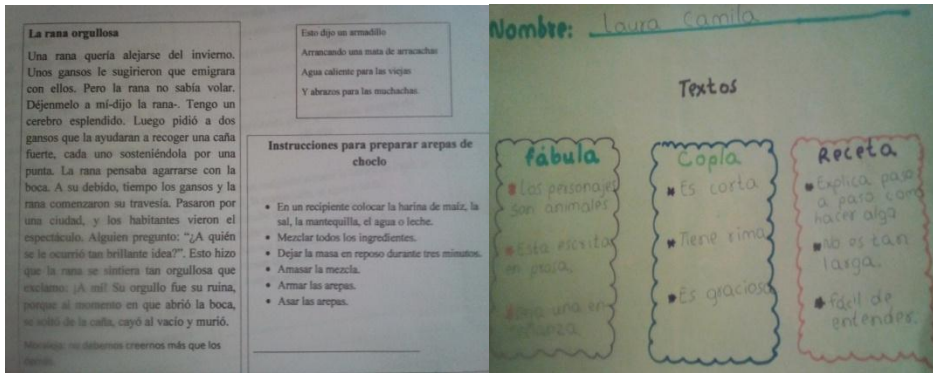 La rana orgullosa
Una rana quería alejarse del invierno.
Unos gansos le sugirieron que emigrara
con ellos. Pero la rana no sabía volar.
Déjenmelo a mí-dijo la rana-. Tengo un
cerebro esplendido. Luego pidió a dos
gansos que la ayudaran a recoger una caña
fuerte, cada uno sosteniéndola por una
punta. La rana pensaba agarrarse con la
boca. A su debido, tiempo los gansos y la
rana comenzaron su travesía. Pasaron por
una ciudad, y los habitantes vieron el
espectáculo. Alguien pregunto: “¿A quién
se le ocurrió tan brillante idea?”. Esto hizo
que la rana se sintiera tan orgullosa que
exclamo: ¡A mí! Su orgullo fue su ruina,
porque al momento en que abrió la boca,
se soltó de la caña, cayó al vacío y murió.
Moraleja: no debemos creernos más que los
Esto dijo un armadillo
Arrancando una mata de arracachas
Agua caliente para las viejas
Y abrazos para las muchachas.
Instrucciones para preparar arepas de
choclo
En un recipiente colocar la harina de maíz, la
sal, la mantequilla, el agua o leche.
Mezclar todos los ingredientes.
Dejar la masa en reposo durante tres minutos.
Amasar la mezcla.
Armar las arepas.
Asar las arepas.
Nombre: Laura Camila
Textos
fábula
Los personajes
son animales
Esta escrita
en prosa.
una en-
eñanza
Copla
Es corta
Tiene rima
Es graciosa
Receta
Explica paso
a paso como
hacer algo
No es tan
larga.
fácil de
entender.